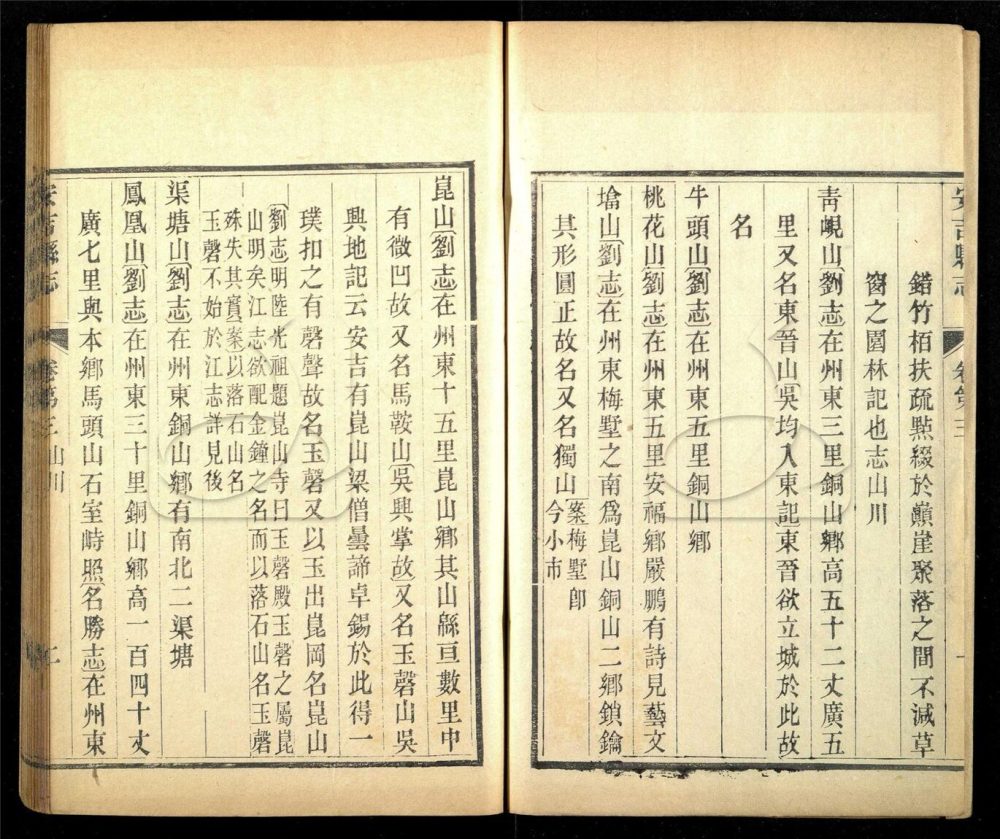 安吉縣志
卷第三
一
錯竹栢扶疏㸃綴於巔崖聚落之間不減草
窗之園林記也志山川
靑峴山劉志在州東三里銅山鄉高五十二丈廣五
里又名東晉山吳均入東記東晉欲立城於此故
名
牛頭山劉志在州東五里銅山鄉
桃花山劉志在州東五里安福鄉嚴鵬有詩見藝文
墖山劉志在州東梅墅之南爲崑山銅山二鄉鎖鑰
其形圓正故名又名獨山案梅墅卽
今小市
崑山劉志在州東十五里崑山鄉其山緜亘數里中
有微凹故又名馬鞍山吳興掌故又名玉磬山吳
興地記云安吉有崑山梁僧曇諦卓錫於此得一
璞扣之有磬聲故名玉磬又以玉出崑岡名崑山
劉志明陸光祖題崑山寺曰玉磬殿玉磬之屬崑
山明矣江志欲配金鐘之名而以落石山名玉磬
殊失其實案以落石山名
玉磬不始於江志詳見後
渠塘山劉志在州東銅山鄉有南北二渠塘
鳳凰山劉志在州東三十里銅山鄉高一百四十丈
廣七里與本鄉馬頭山石室峙照名勝志在州東
安吉縣志
卷第三 山川
二